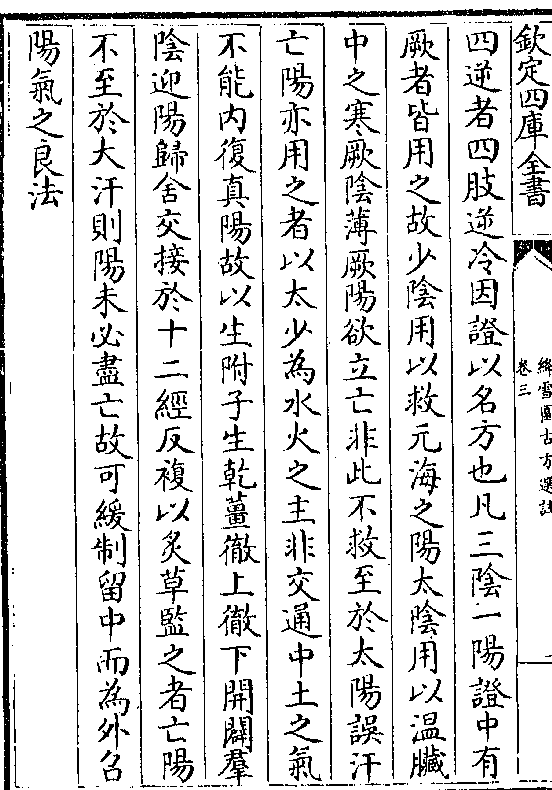 欽定四庫全書
絳雪園古方選註
卷三
四逆者四肢逆冷因證以名方也凡三陰一陽證中有
厥者皆用之故少陰用以救元海之陽太陰用以温臓
中之寒厥陰薄厥陽欲立亡非此不救至於太陽誤汗
亡陽亦用之者以太少為水火之主非交通中土之氣
不能内復真陽故以生附子生乾薑徹上徹下開闢羣
陰迎陽歸舍交接於十二經反複以炙草監之者亡陽
不至於大汗則陽未必盡亡故可緩制留中而為外召
陽氣之良法